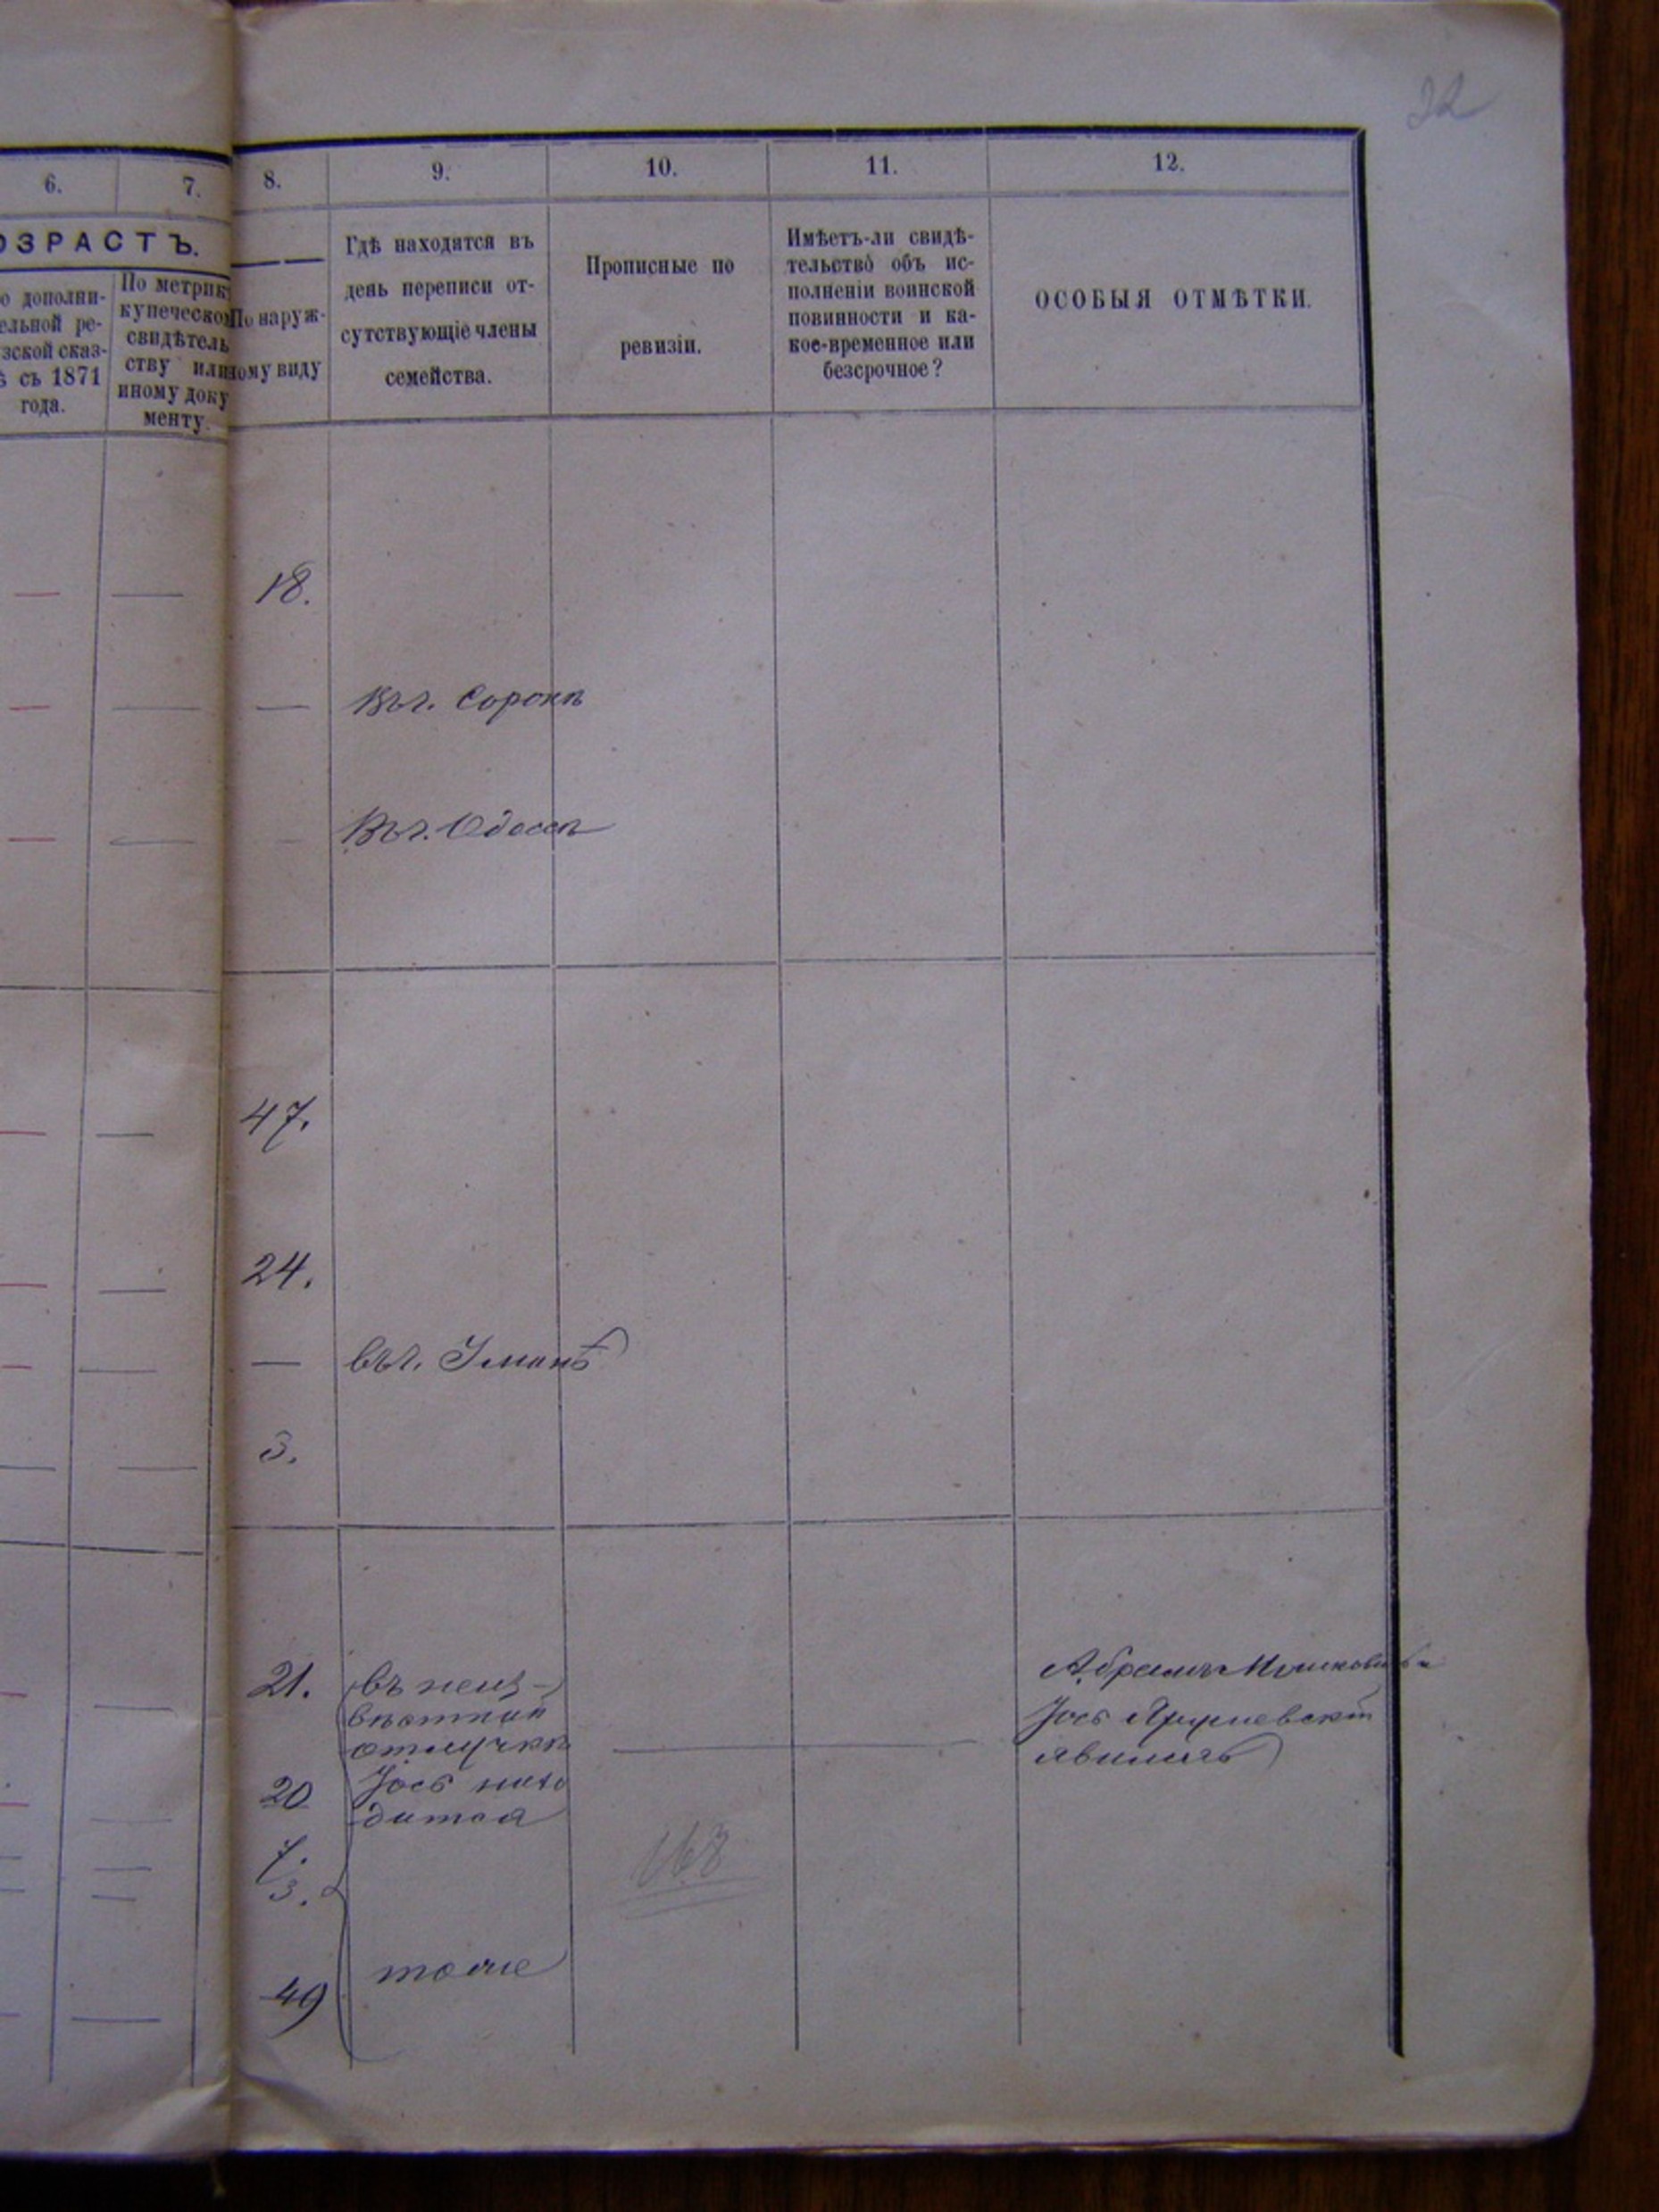 22
6.
7.
8.
9.
10.
11.
12.
ОЗРАСТЪ.
о дополни-
ельной ре-
зской сказ-
ѣ съ 1871
года.
По метрик
купеческом
свидѣтель
ству или
иному доку
менту.
По наруж-
ному виду
Гдѣ находятся въ
день переписи от-
сутствующіе члены
семейства.
Прописные по
ревизіи.
Имѣетъ-ли свидѣ-
тельство объ ис-
полненіи воинской
повинности и ка-
кое-временное или
безсрочное?
ОСОБЫЯ ОТМѢТКИ.
18.
Въ г. Сорокѣ
Въ г. Одессѣ
47.
24.
въ г. Умани
3.
21.
въ неиз-
вѣстной
отлучкѣ
Іось нахо
дится
Абрамъ Мошковъ
Іось
явились
20
7.
3.
168
тоже
49